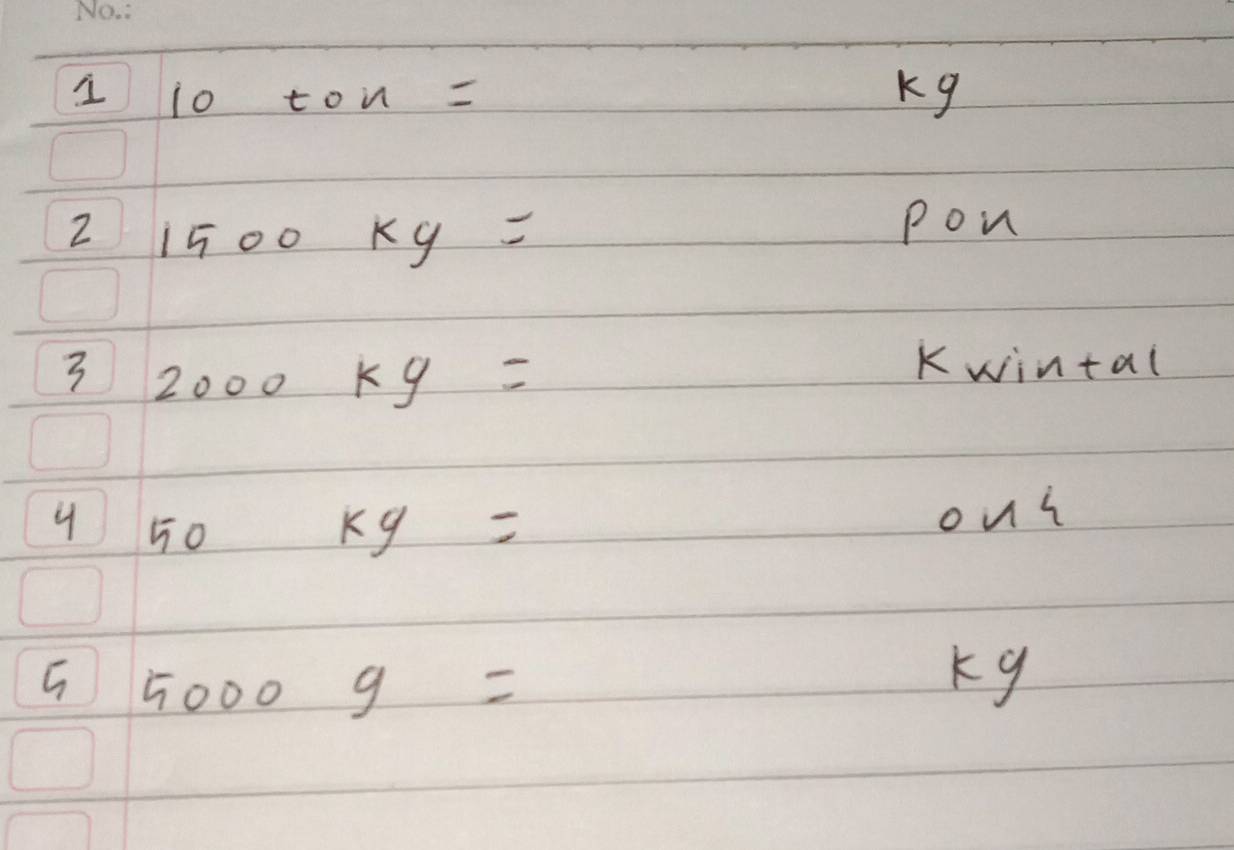 No.:
1 10 ton = kg
2 1500 kg = pon
3 2000 kg = kwintal
4 50 kg = ons
5 5000 g = kg